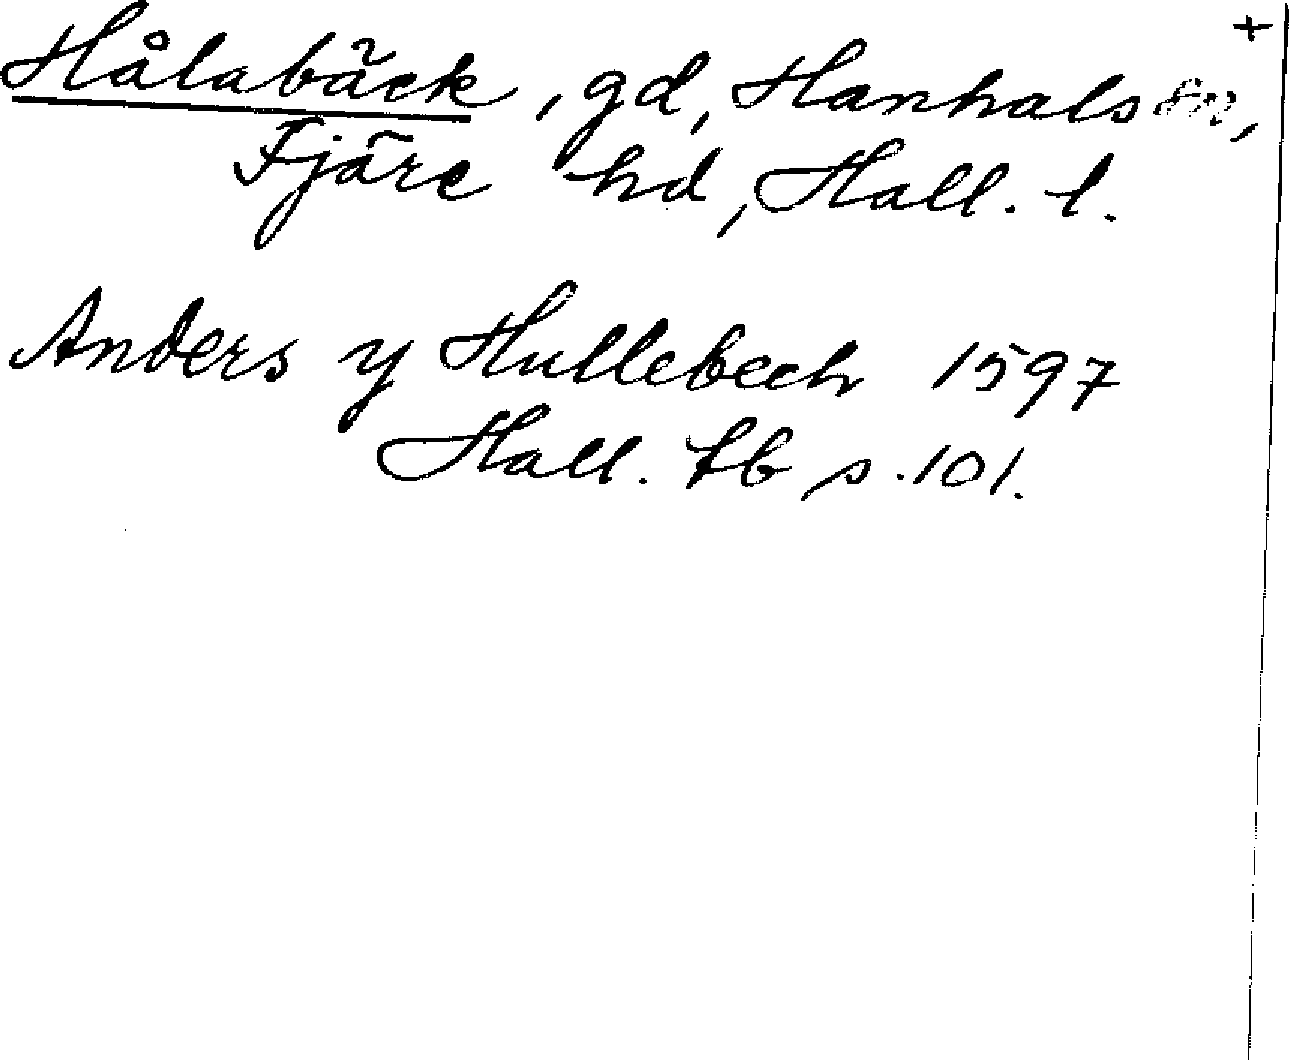 +
Hålabäck, gd, Hanhals sn,
Fjäre hd, Hall. l.
Anders y Hullebech 1597
Hall. tb s. 101.